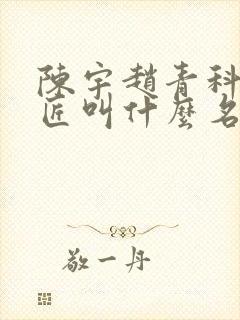 陳宇趙青科
匠叫什麼名
敬一丹